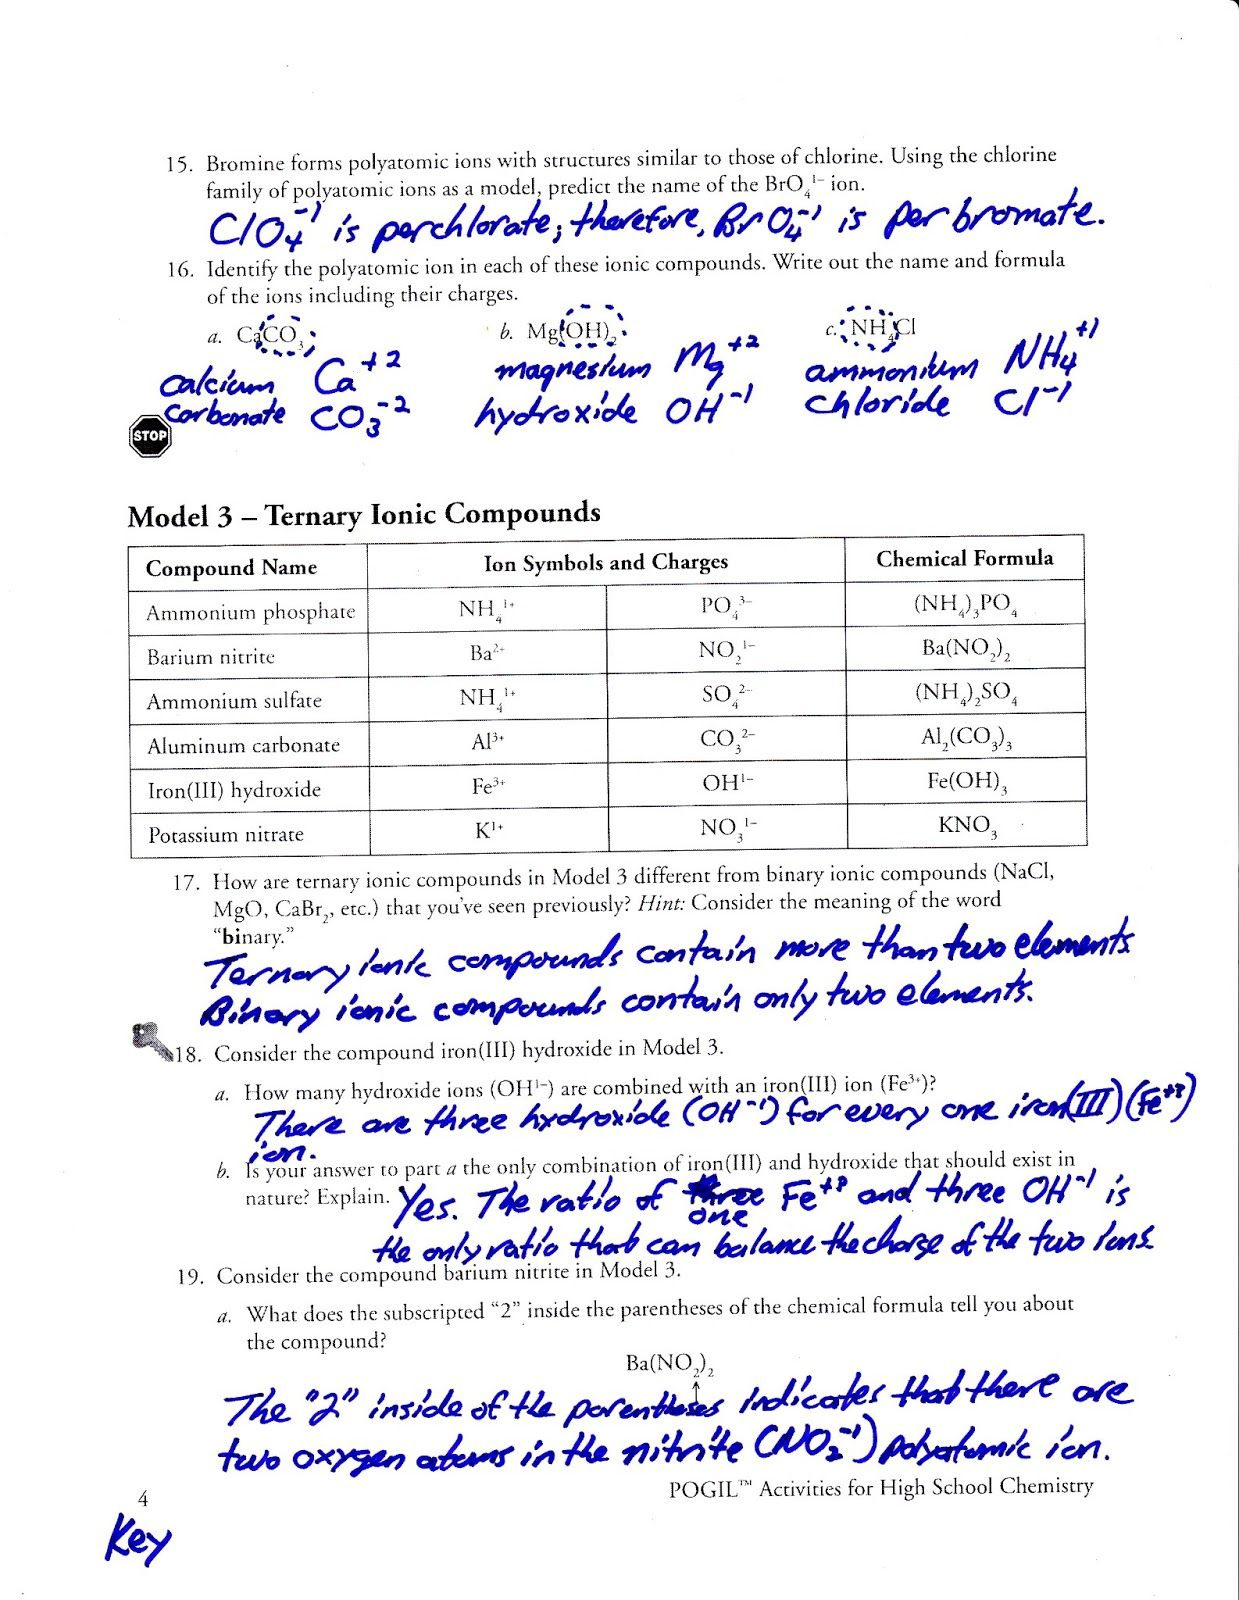 15. Bromine forms polyatomic ions with structures similar to those of chlorine. Using the chlorine
family of polyatomic ions as a model, predict the name of the BrO₄¹⁻ ion.
ClO₄⁻¹ is perchlorate; therefore, BrO₄⁻¹ is perbromate.
16. Identify the polyatomic ion in each of these ionic compounds. Write out the name and formula
of the ions including their charges.
a. CaCO₃ b. Mg(OH)₂ c. NH₄Cl
calcium Ca⁺² magnesium Mg⁺² ammonium NH₄⁺¹
carbonate CO₃⁻² hydroxide OH⁻¹ chloride Cl⁻¹
STOP
Model 3 – Ternary Ionic Compounds
Compound Name Ion Symbols and Charges Chemical Formula
Ammonium phosphate NH₄¹⁺ PO₄³⁻ (NH₄)₃PO₄
Barium nitrite Ba²⁺ NO₂¹⁻ Ba(NO₂)₂
Ammonium sulfate NH₄¹⁺ SO₄²⁻ (NH₄)₂SO₄
Aluminum carbonate Al³⁺ CO₃²⁻ Al₂(CO₃)₃
Iron(III) hydroxide Fe³⁺ OH¹⁻ Fe(OH)₃
Potassium nitrate K¹⁺ NO₃¹⁻ KNO₃
17. How are ternary ionic compounds in Model 3 different from binary ionic compounds (NaCl,
MgO, CaBr₂, etc.) that you've seen previously? Hint: Consider the meaning of the word
"binary."
Ternary ionic compounds contain more than two elements
Binary ionic compounds contain only two elements.
18. Consider the compound iron(III) hydroxide in Model 3.
a. How many hydroxide ions (OH¹⁻) are combined with an iron(III) ion (Fe³⁺)?
There are three hydroxide (OH⁻¹) for every one iron(III) (Fe⁺³)
ion.
b. Is your answer to part a the only combination of iron(III) and hydroxide that should exist in
nature? Explain. Yes. The ratio of Fe⁺³ and three OH⁻¹ is
one
the only ratio that can balance the charge of the two ions.
19. Consider the compound barium nitrite in Model 3.
a. What does the subscripted "2" inside the parentheses of the chemical formula tell you about
the compound?
Ba(NO₂)₂
The "2" inside of the parentheses indicates that there are
two oxygen atoms in the nitrite (NO₂⁻¹) polyatomic ion.
4 POGIL™ Activities for High School Chemistry
Key